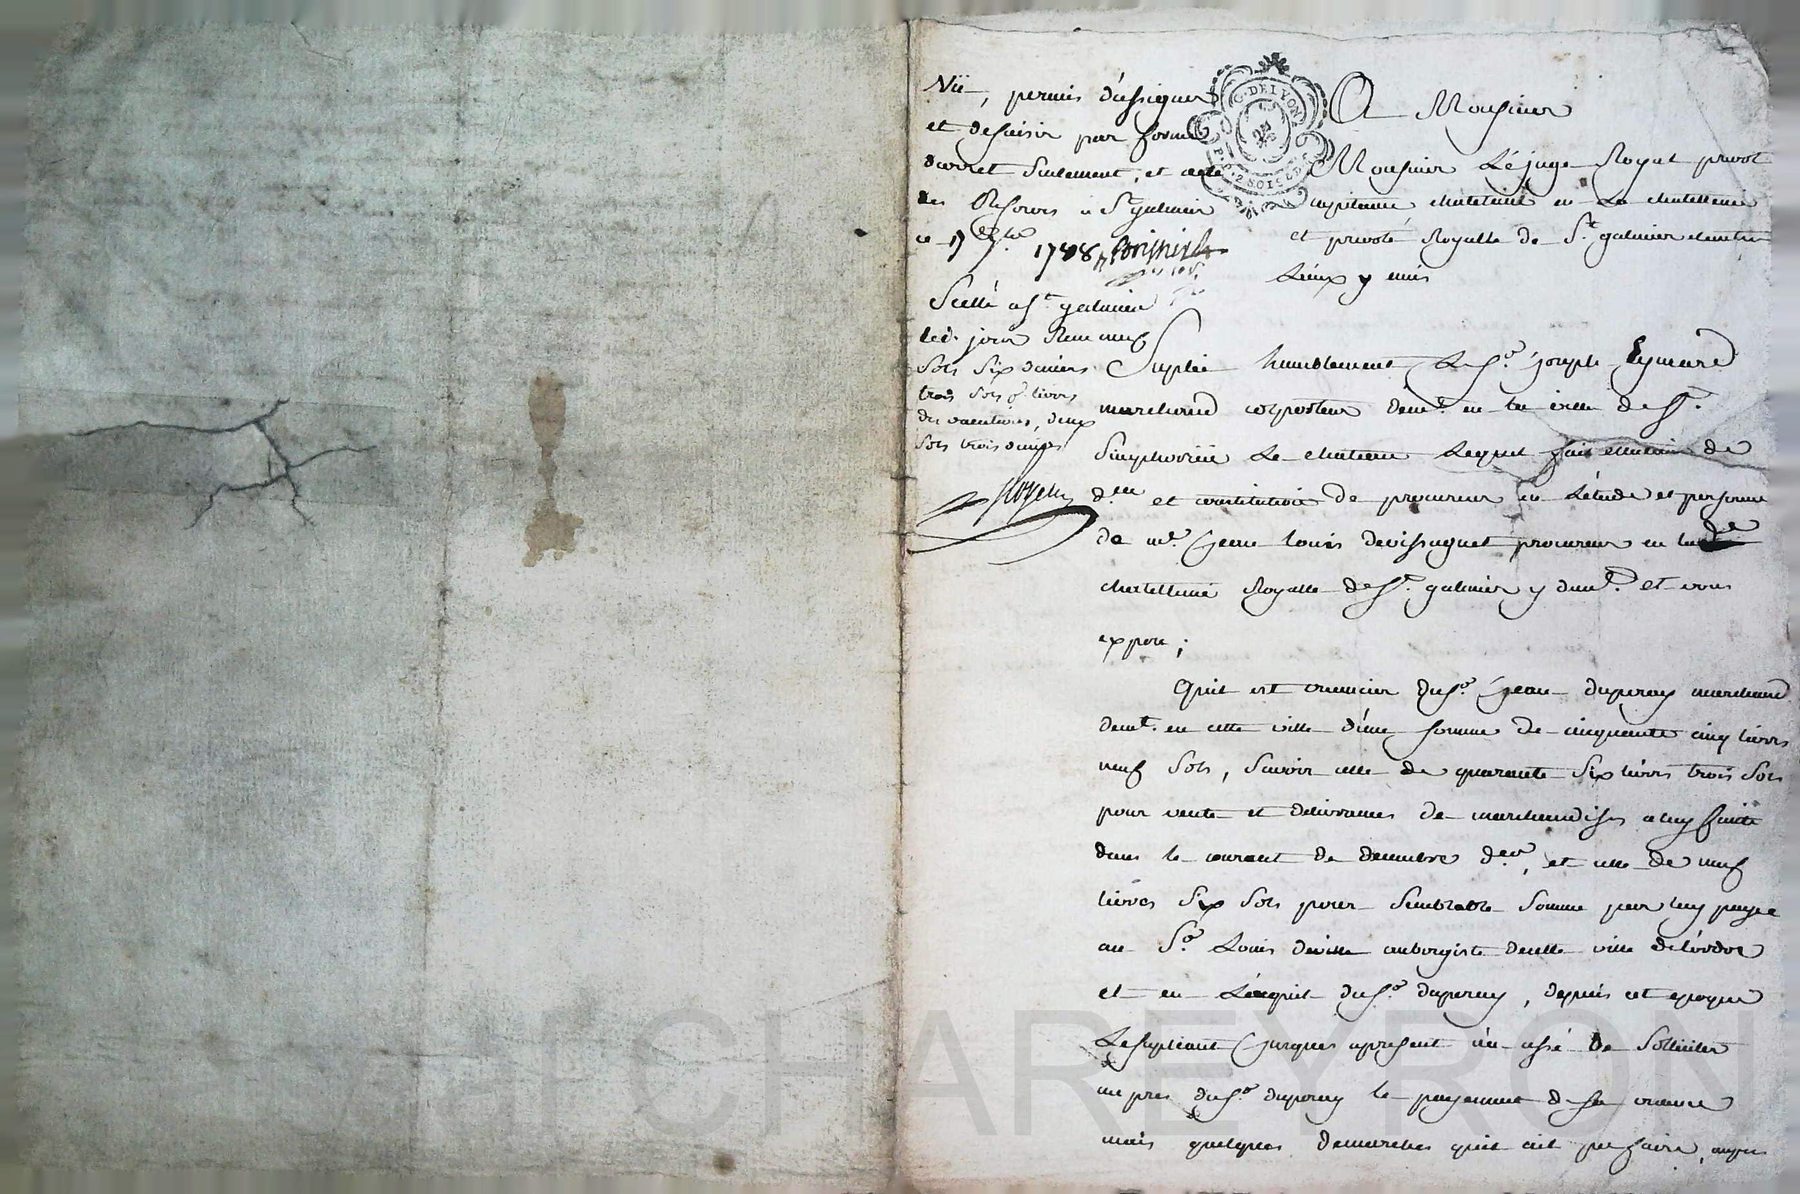 Vu, permis d'assigner
et desaisir par forme
d'arret seulement, et
des Resors a St galmier
ce 17 1788
Scellé a St galmier
led. jour Reçu neuf
sols six deniers
trois sols p. livres
du vacations, deux
sols trois deniers
Royet
G. DE LYON
2 SOLS
A Monsieur
Monsieur Le juge Royal prevot
capitaine chatelain en La chatellenie
et prevoté Royalle de St. galmier et autres
Lieux y unis
Suplie humblement Le Sr. joseph Eymard
marchand colporteur demt. en la ville de St.
Simphorien Le chateau Lequel fait election de
dlle et constitution de procureur en L'etude et personne
de me. jean louis devissaguet procureur en lade
chatellenie Royalle de St. galmier y demt. et vous
expose ;
Quil est creancier du Sr. jean duperay marchand
demt. en cette ville d'une somme de cinquante cinq livres
neuf sols, savoir celle de quarante six livres trois sols
pour vente et delivrances de marchandises a luy faite
dans le courant de decembre der, et celle de neuf
livres six sols pour semblable somme par luy payée
au Sr. Louis deville aubergiste de
et en L'acquit du Sr. duperay, depuis cet epoque
Le supliant jusques apresent n'a cessé de solliciter
aupres du Sr. duperay le payement de sa creance
mais quelques demarches quil ait pu faire, aupres
CHAREYRON